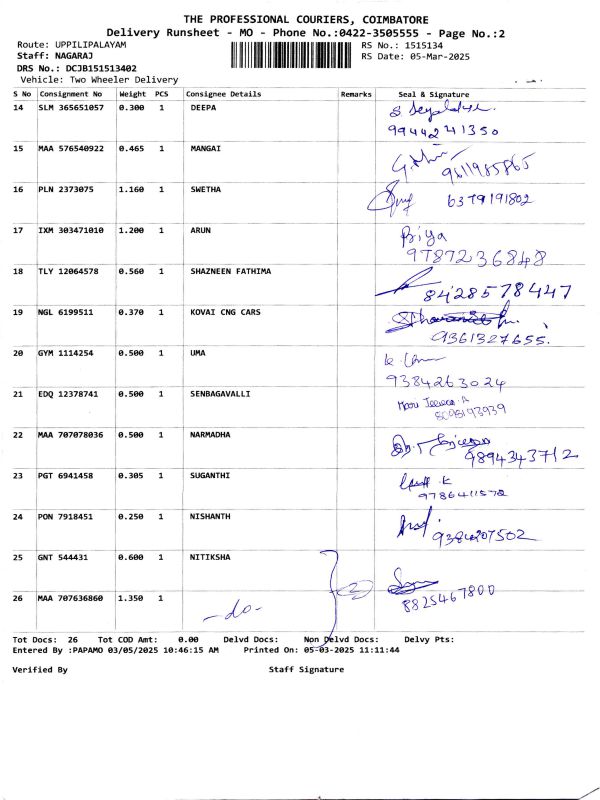 THE PROFESSIONAL COURIERS, COIMBATORE
Delivery Runsheet - MO - Phone No.:0422-3505555 - Page No.:2
Route: UPPILIPALAYAM RS No.: 1515134
Staff: NAGARAJ RS Date: 05-Mar-2025
DRS No.: DCJB151513402
Vehicle: Two Wheeler Delivery
S No Consignment No Weight PCS Consignee Details Remarks Seal & Signature
14 SLM 365651057 0.300 1 DEEPA
99442 41350
15 MAA 576540922 0.465 1 MANGAI
9611985865
16 PLN 2373075 1.160 1 SWETHA 6379191802
17 IXM 303471010 1.200 1 ARUN Priya
9787236848
18 TLY 12064578 0.560 1 SHAZNEEN FATHIMA
84285 78447
19 NGL 6199511 0.370 1 KOVAI CNG CARS
9361327655.
20 GYM 1114254 0.500 1 UMA
9384263024
21 EDQ 12378741 0.500 1 SENBAGAVALLI
8098193939
22 MAA 707078036 0.500 1 NARMADHA
9894343712
23 PGT 6941458 0.305 1 SUGANTHI
9786411572
24 PON 7918451 0.250 1 NISHANTH
9384207502
25 GNT 544431 0.600 1 NITIKSHA
2
26 MAA 707636860 1.350 1 -do- 8825467800
Tot Docs: 26 Tot COD Amt: 0.00 Delvd Docs: Non Delvd Docs: Delvy Pts:
Entered By :PAPAMO 03/05/2025 10:46:15 AM Printed On: 05-03-2025 11:11:44
Verified By Staff Signature